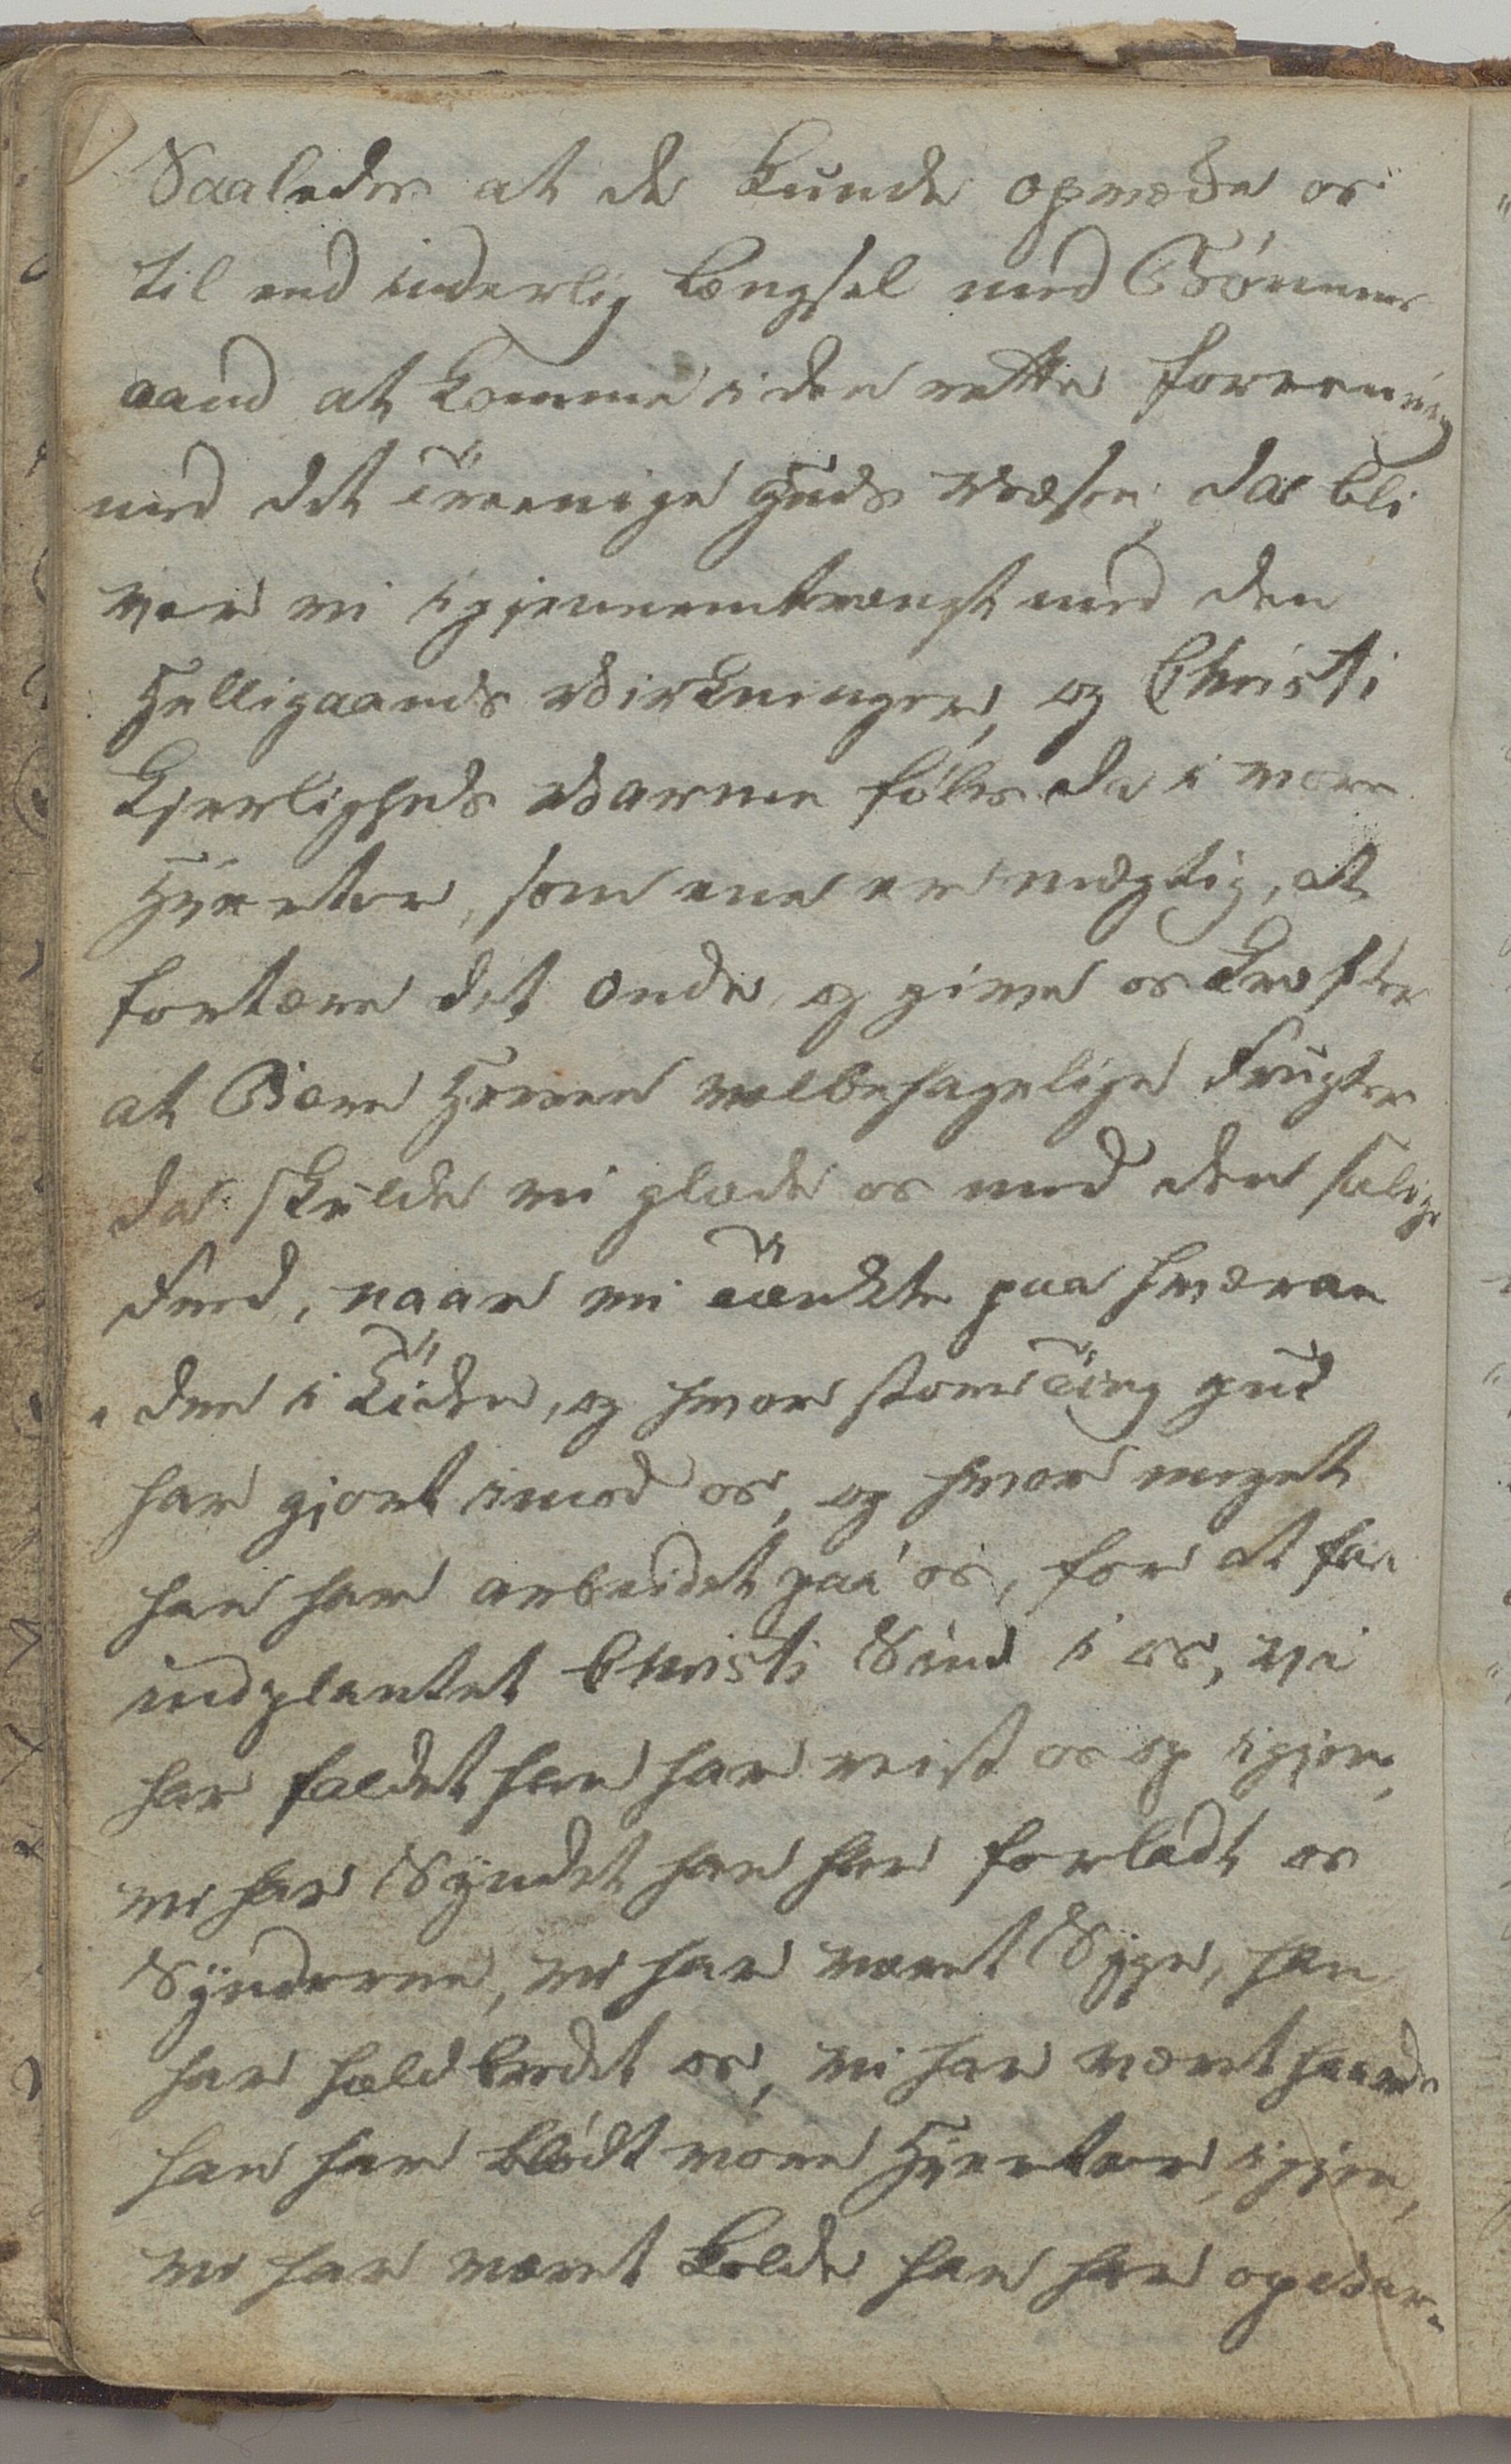 Saaledes at de kunde opvæke os
til end inderlig længsel med Bönnens
aand at komme i den rette forening
med det Treenige Guds Væsen, da bli
ver vi igjennemtrængt med den
Helligaands Virkninger, og Christi
Kjerligheds Varme föles da i vore
Hjerter, som ene er mægtig, at
fortære det onde, og give os Kræfter
at Bære Herren velbehagelige Frugter
da skulde vi glæde os med den salige
Fred, naar vi tænkte paa hveran
den i Tiden, og hvor store Ting Gud
har gjort imod os, og hvor meget
han har arbeidet paa os, for at faa
indplantet Christi Sind i os, vi
har faldet han har reist os op igjen,
vi har Syndet han har forladt os
Synderne, vi har været Syge, han
har hælbredet os, vi har været haarde
han har blödt vore Hjerter, igjen,
vi har været kolde han har opvar-